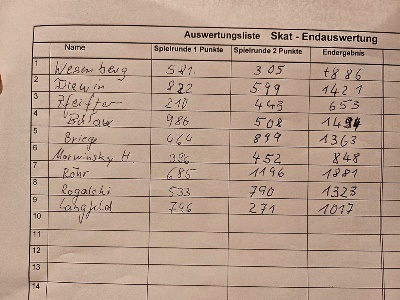 Auswertungsliste Skat - Endauswertung
Name Spielrunde 1 Punkte Spielrunde 2 Punkte Endergebnis
1 Wesenberg 581. 305 +886
2 822 599 1421
3 Pfeiffer 210 443 653
4 986 508 1494
5 Briege 464 899 1363
6 Morwinsky H. 396 452 848
7 Röhr 685 1196 1881
8 Rogalski 533 790 1323
9 Langfeld 746 271 1017
10
11
12
13
14